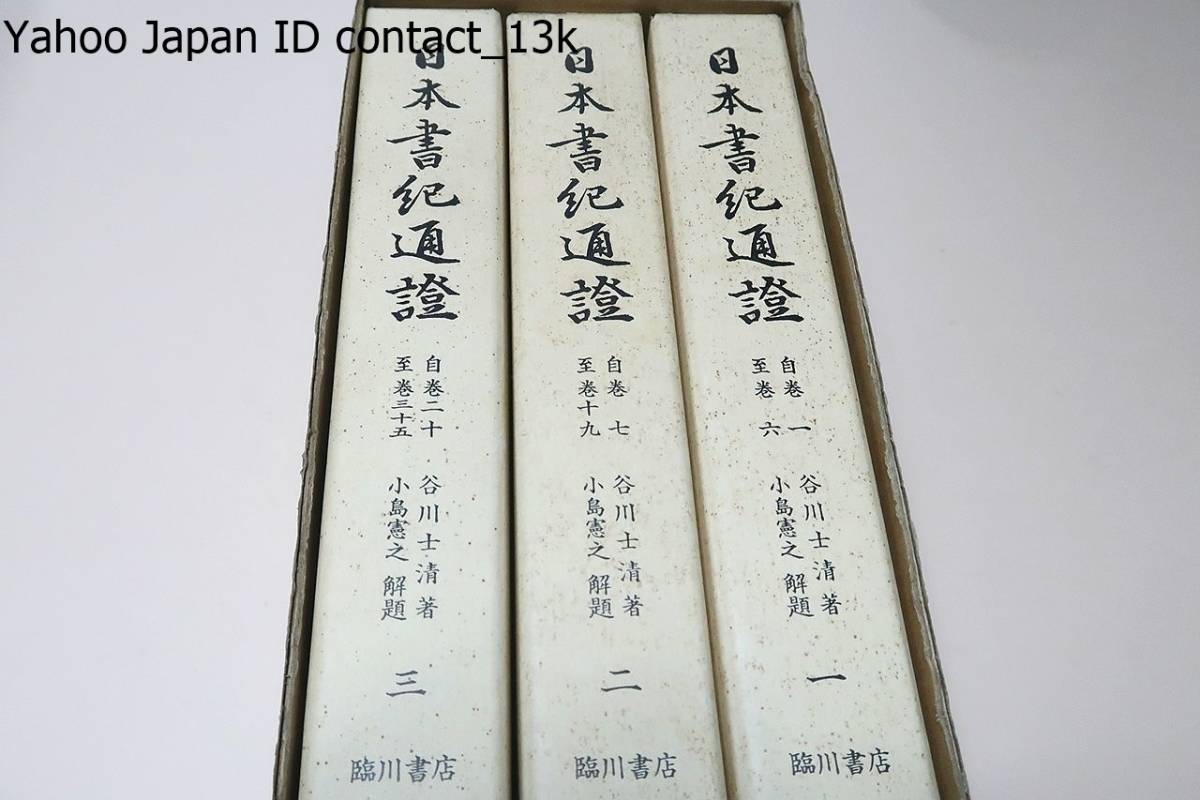 Yahoo Japan ID contact_13k
日本書紀通證
自巻一
至巻六
谷川士清著
小島憲之解題
一
臨川書店
日本書紀通證
自巻七
至巻十九
谷川士清著
小島憲之解題
二
臨川書店
日本書紀通證
自巻二十
至巻三十五
谷川士清著
小島憲之解題
三
臨川書店